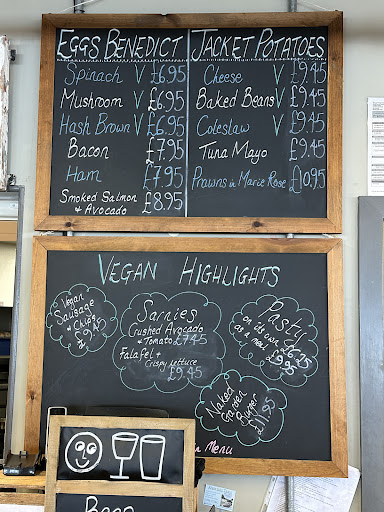 EGGS BENEDICT
Spinach V £6.95
Mushroom V £6.95
Hash Brown V £6.95
Bacon £7.95
Ham £7.95
Smoked Salmon
& Avocado £8.95
JACKET POTATOES
Cheese £9.45
Baked Beans V £9.45
Coleslaw V £9.45
Tuna Mayo £9.45
Prawns in Marie Rose £10.95
VEGAN HIGHLIGHTS
Vegan
Sausage
& Chips
£9.45
Sarnies
Crushed Avocado
& Tomato £7.45
Falafel +
Crispy Lettuce
£9.45
Pasty
on its own £6.25
as a meal £9.95
Naked
Garden
Burger
£11.95
Menu